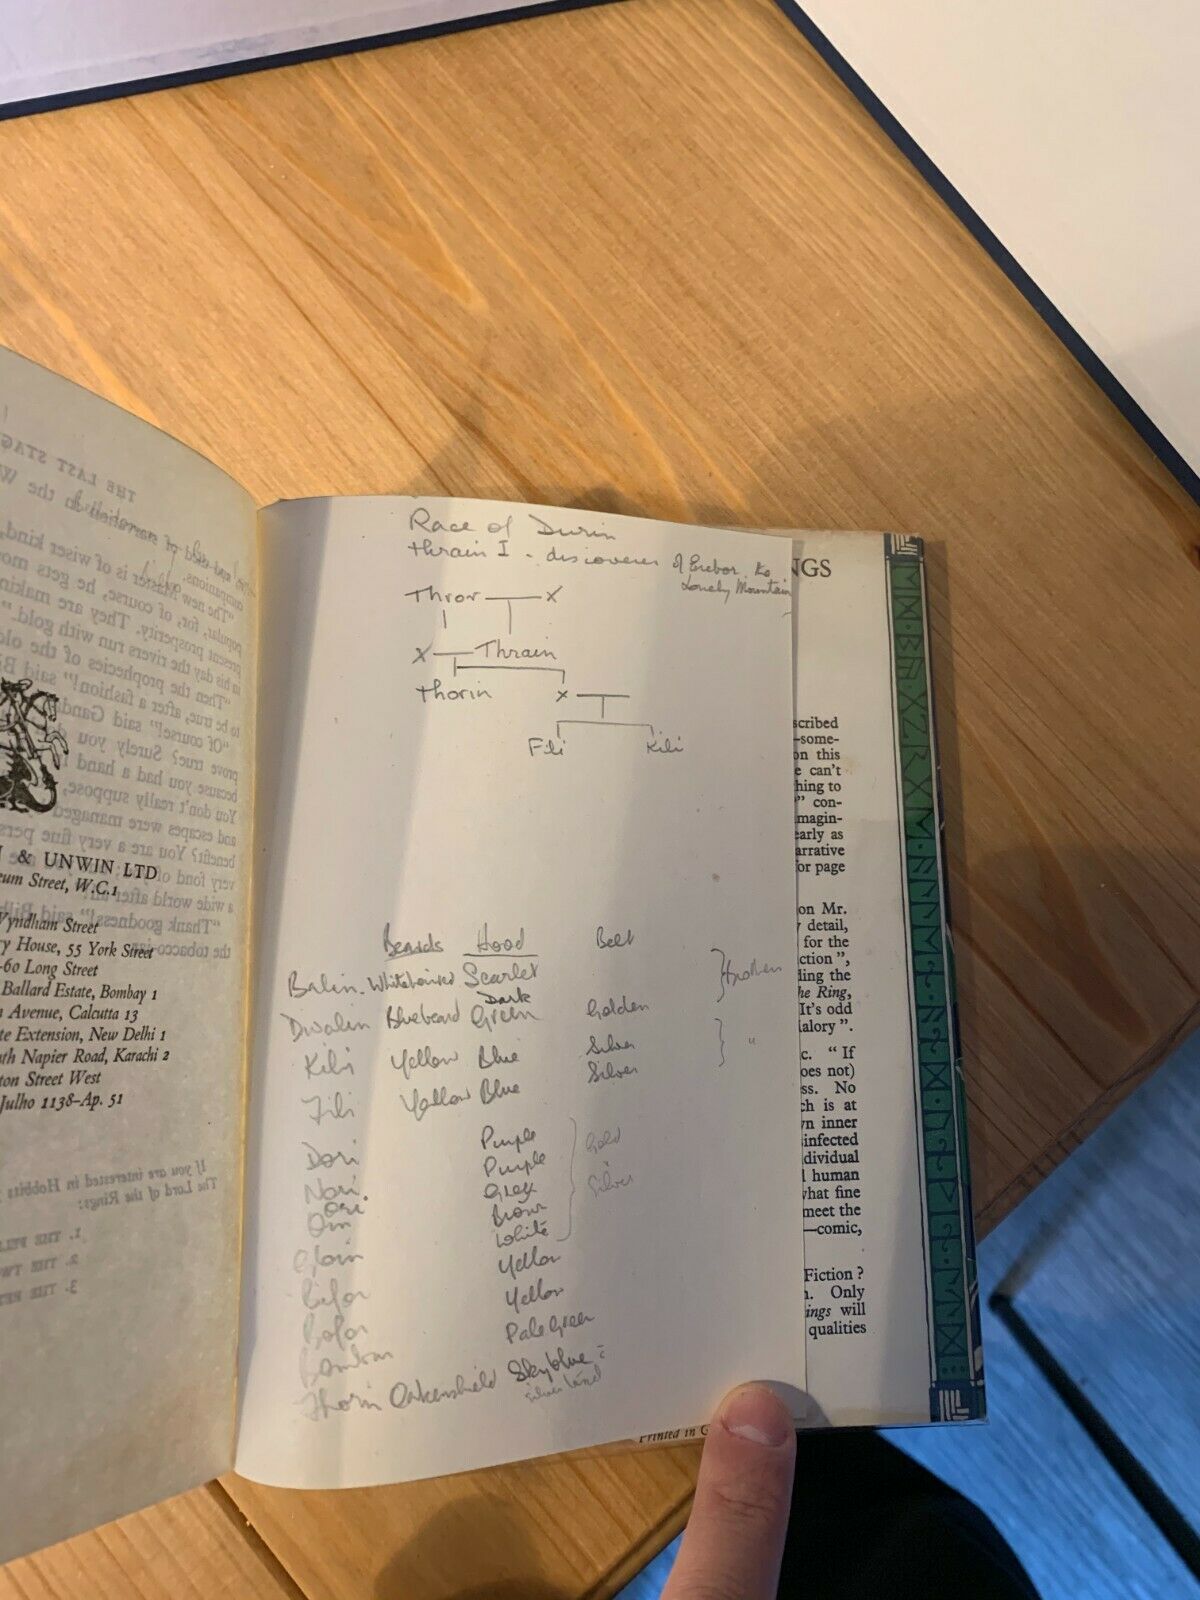 THE LAST STAG
in the W
and
companions.
"The new Master is of wiser kind,
popular, for, of course, he gets mos
present prosperity. They are makin
in his day the rivers run with gold."
"Then the prophecies of the old
to be true, after a fashion!" said Bi
"Of course!" said Ganda
prove true? Surely you d
because you had a hand i
You don't really suppose,
and escapes were managed
benefit? You are a very fine pers
very fond of
a wide world after all!"
"Thank goodness!" said Bilb
the tobacco-jar.
& UNWIN LTD
eum Street, W.C.1
Wyndham Street
ry House, 55 York Street
-60 Long Street
Ballard Estate, Bombay 1
n Avenue, Calcutta 13
te Extension, New Delhi 1
uth Napier Road, Karachi 2
ton Street West
Julho 1138–Ap. 51
If you are interested in Hobbits
The Lord of the Rings:
1. THE FEL
2. THE TW
3. THE RET
Race of Durin
Thrain I - discoverer of Erebor. the
Lonely Mountain
Thror X
X Thrain
Thorin X
Fili Kili
Beards Hood Belt
Balin Whitehaired Scarlet
Dwalin Bluebeard Dark Green Golden
Kili Yellow Blue Silver
Fili Yellow Blue Silver
Brothers
"
Dori Purple
Nori Purple
Ori Grey
Oin Brown
Gloin White
Gold
Silver
Bifor Yellow
Bofor Yellow
Bombur Pale Green
Thorin Oakenshield Skyblue
silver
NGS
scribed
—some-
on this
e can't
hing to
" con-
magin-
early as
arrative
or page
on Mr.
detail,
for the
ction",
ding the
he Ring,
It's odd
alory".
c. "If
oes not)
ss. No
ch is at
wn inner
sinfected
dividual
human
what fine
meet the
—comic,
Fiction?
n. Only
ings will
qualities
Printed in G